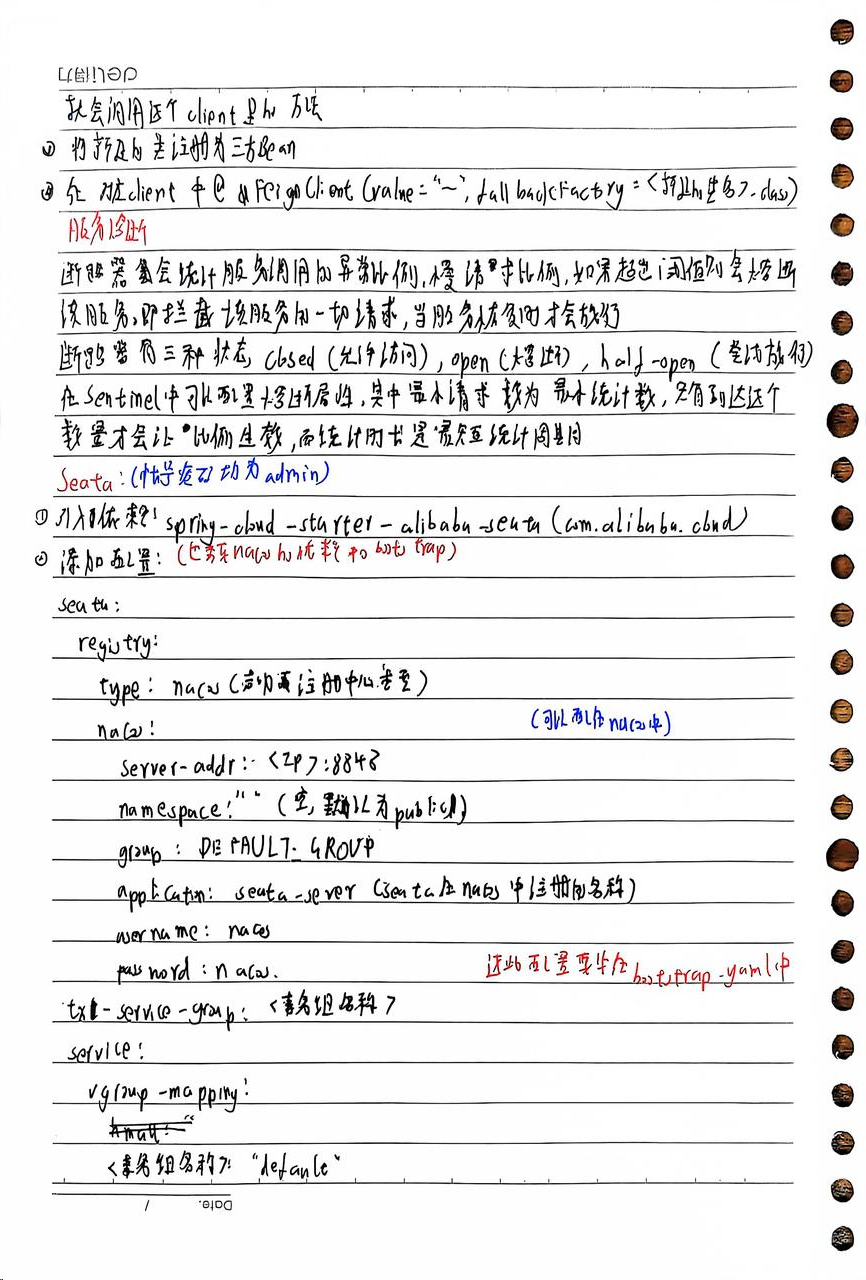 deli得力
就会调用这个client里的方法
② 将新建的类注册为三方Bean
③ 在 对应client 中@ FeignClient (value="~", fallbackFactory=<新建的类名>.class)
服务熔断
断路器会统计服务调用的异常比例,慢请求比例,如果超出阈值则会熔断
该服务,即拦截该服务的一切请求,当服务恢复时才会放行
断路器有三种状态 closed (允许访问), open (熔断), half-open (尝试放行)
在Sentinel中可以配置熔断属性,其中最小请求数为 最小统计数,只有到达这个
数量才会让比例生效,而统计时长是 统计周期
Seata:(帐号密码均为admin)
① 引入依赖: spring-cloud-starter-alibaba-seata (com.alibaba.cloud)
② 添加配置: (还需nacos的依赖和bootstrap)
seata:
registry:
type: nacos (注册中心类型)
nacos:
(可以配在nacos中)
server-addr: <IP>:8848
namespace: "" (空,默认为public)
group: DEFAULT_GROUP
application: seata-sever (seata在nacos中注册的名称)
username: nacos
password: nacos
这些配置要写在bootstrap.yaml中
tx-service-group: <事务组名称>
service:
vgroup-mapping:
<事务组名称>: "default"
Date. /